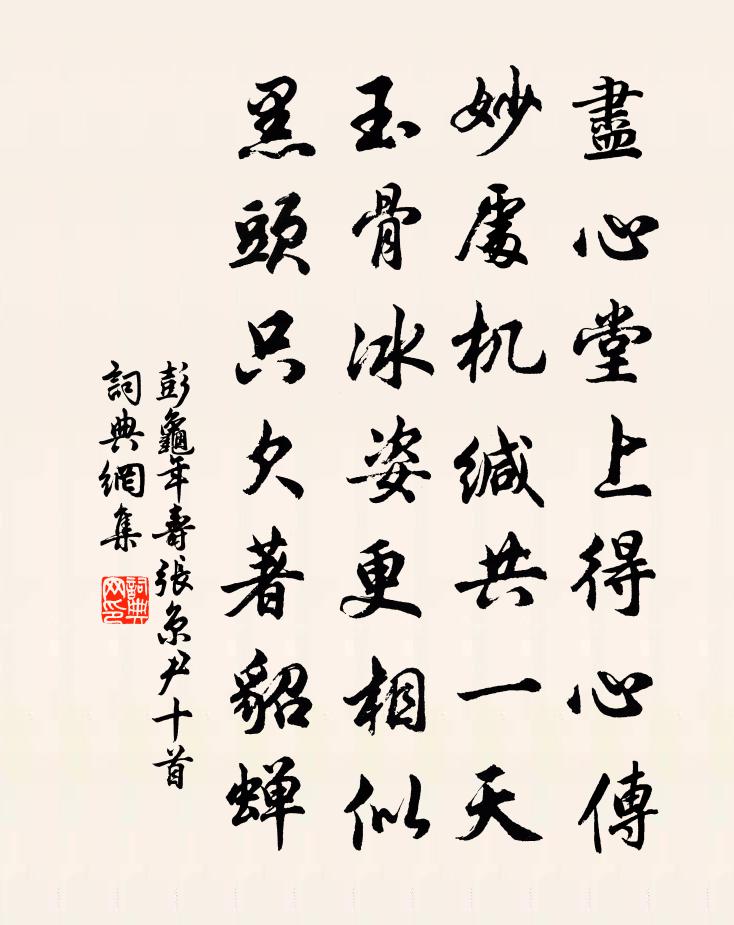 盡心堂上得心傳
妙處机緘共一天
玉骨冰姿更相似
黑頭只欠著貂蟬
彭龜年壽張京尹十首
詞典網集
詞典